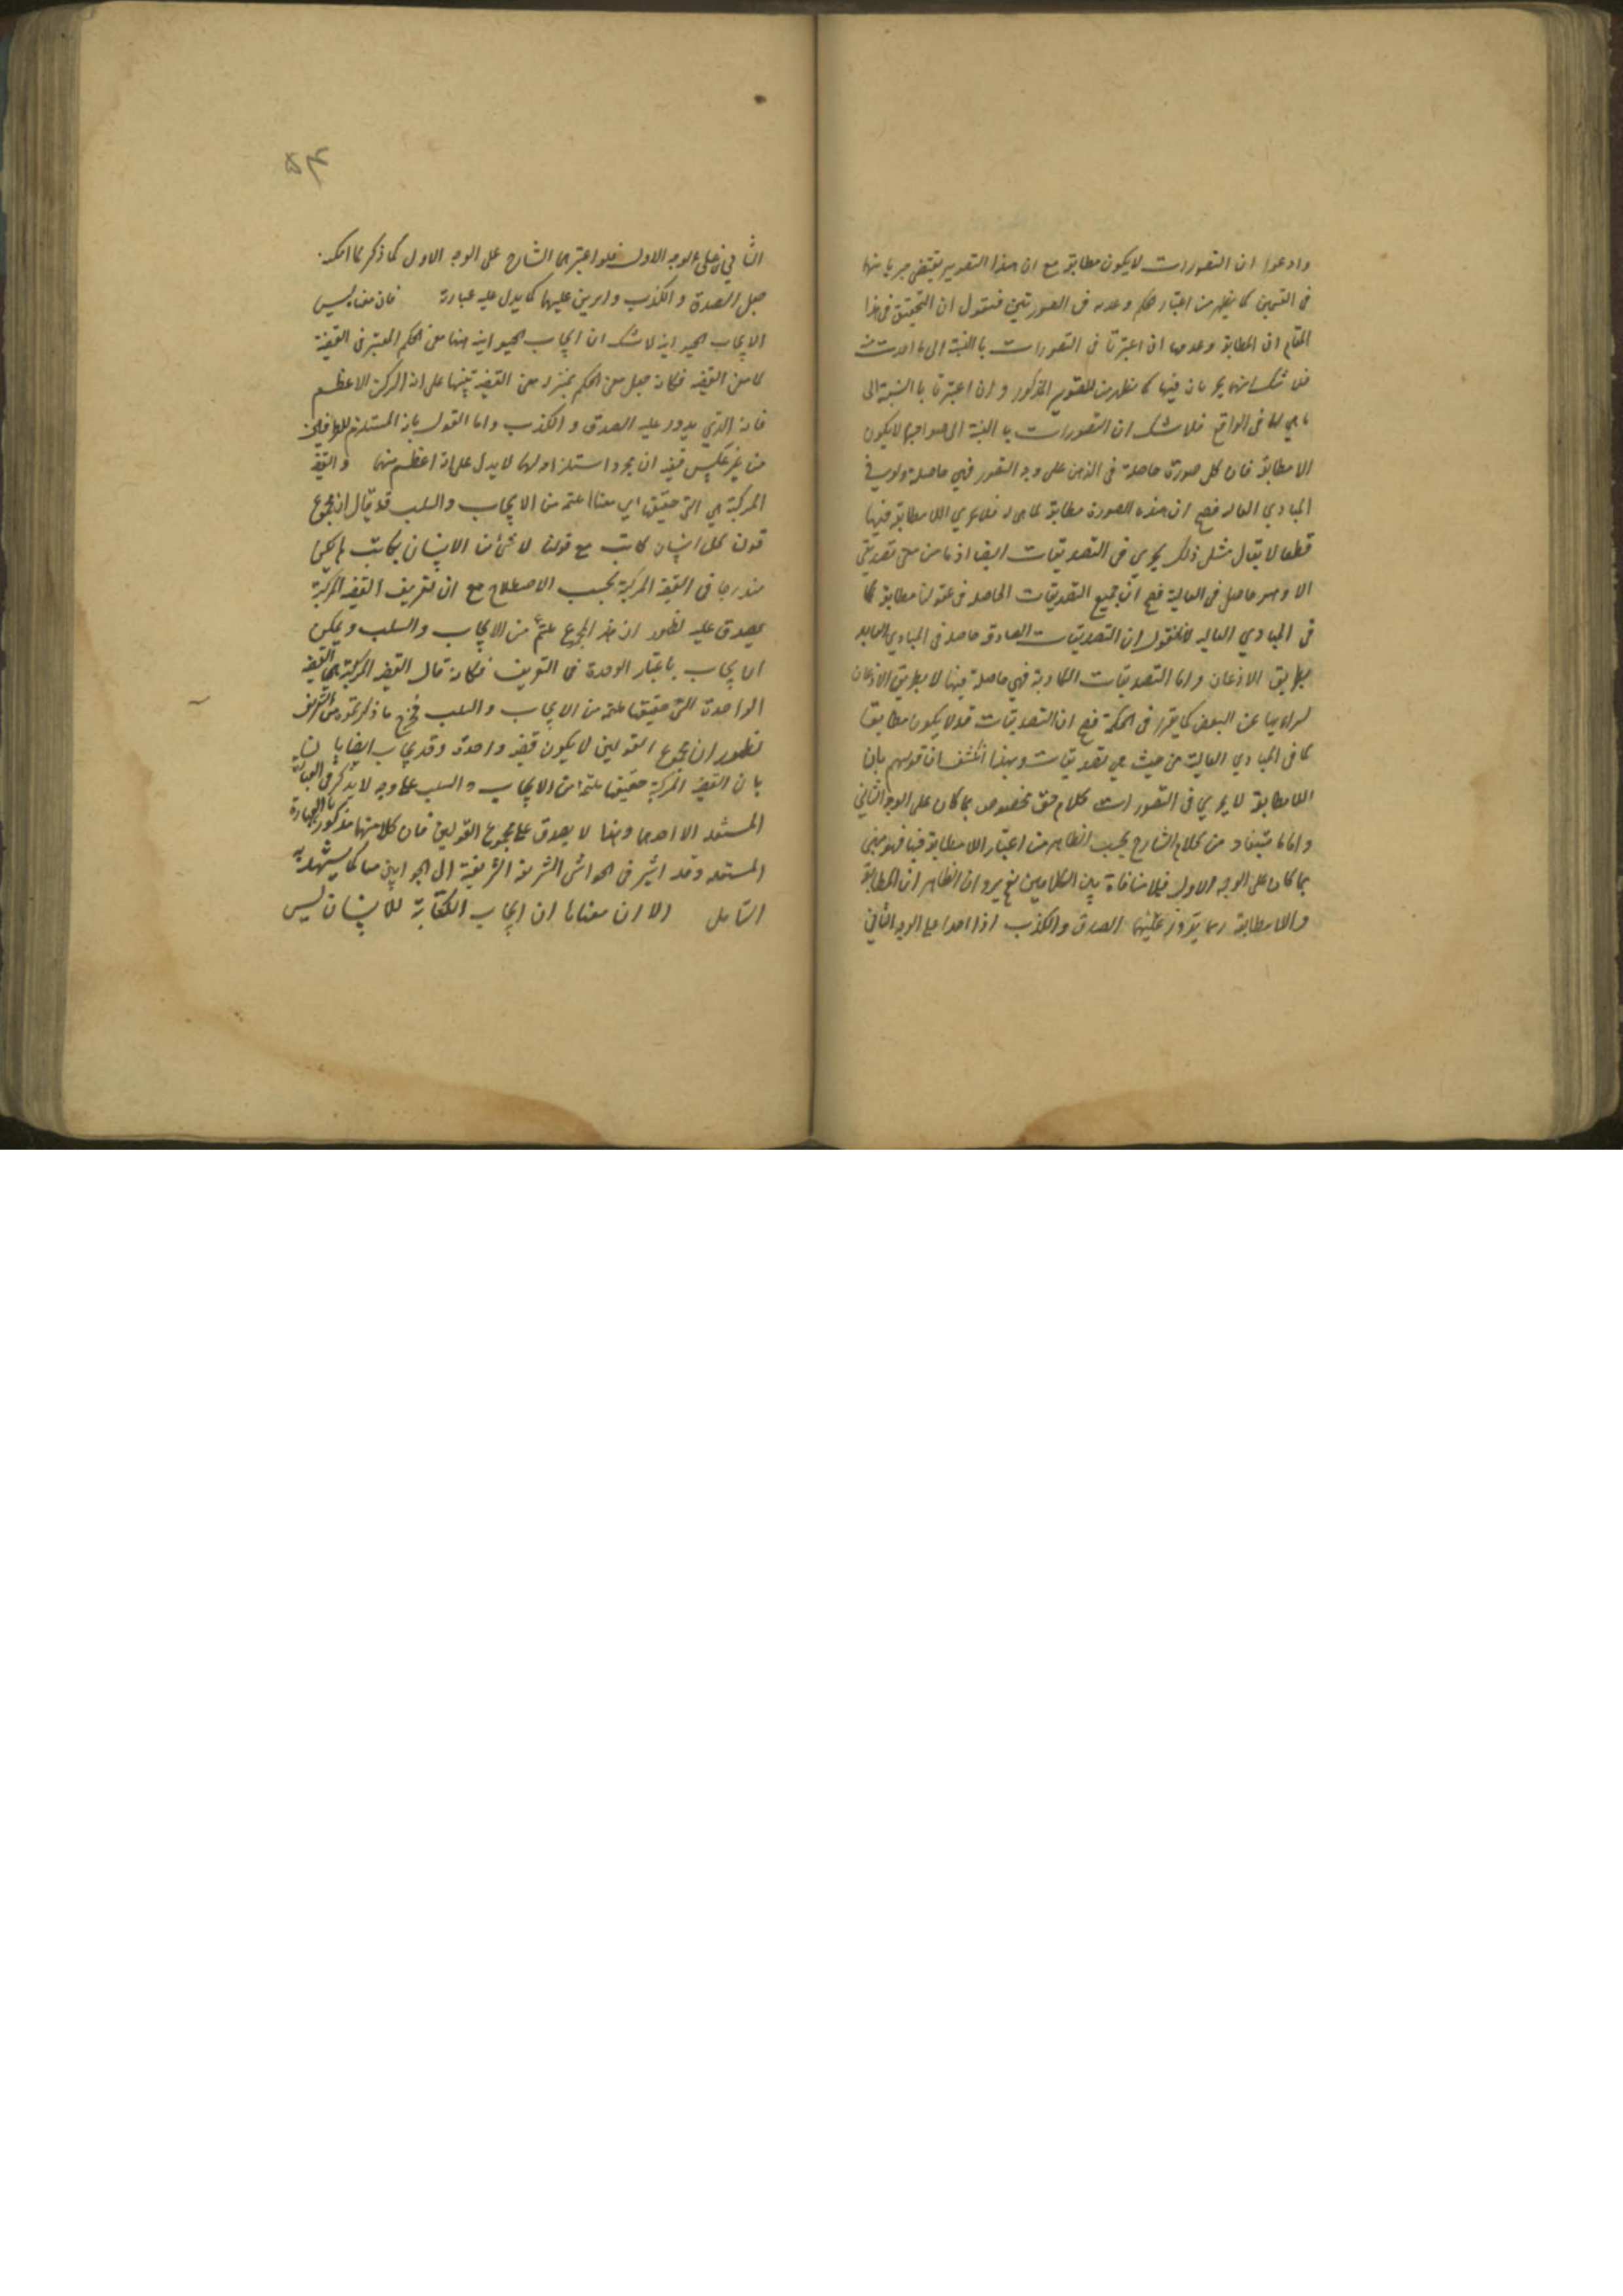 وادعوا ان التصورات لا يكون مطابقة مع ان هذا التقدير يقتضي جريانها
في القسمين كما يظهر من اعتبار حكم وعدمه في الصورتين فنقول ان التحقيق في هذا
المقام ان المطابقة وعدمها ان اعتبرتا في التصورات بالنسبة الى
فلا شك انهما يجريان فيها كما يظهر من التصوير المذكور وان اعتبرتا بالنسبة الى
ما هي لها في الواقع فلا شك ان التصورات بالنسبة الى صواحبها لا يكون
الا مطابقة فان كل صورة حاصلة في الذهن على وجه التصور فهي حاصلة في
المبادي العالية فصح ان هذه الصورة مطابقة لما هي له فلا يجري اللامطابقة فيها
قطعا لا يقال مثل ذلك يجري في التصديقات ايضا اذ ما من تصديق
الا وهو حاصل في العالية فصح ان جميع التصديقات الحاصلة في عقولنا مطابقة لما
في المبادي العالية لانا نقول ان التصديقات الصادقة حاصلة في المبادي العالية
بطريق الاذعان واما التصديقات الكاذبة فهي حاصلة فيها لا بطريق الاذعان
لبراءتها عن النقص كما تقرر في الحكمة فصح ان التصديقات قد لا يكون مطابقا
لما في المبادي العالية من حيث هي تصديقات وبهذا انكشف ان قولهم بان
اللامطابقة لا يجري في التصورات كلام حق مخصوص بما كان على الوجه الثاني
واما ما يستفاد من كلام الشارح بحسب الظاهر من اعتبار اللامطابقة فيها فهو مبني
بما كان على الوجه الاول فلا منافاة بين الكلامين نعم يرد ان الظاهر ان المطابقة
واللامطابقة ربما الصدق والكذب اذا اخذا على الوجه الثاني
۵۴
الثاني لا على الوجه الاول فلو اعتبرهما الشارح على الوجه الاول كما ذكر لما امكنه
جعل الصدق والكذب دايرين عليهما كما يدل عليه عبارته فان معناه ليس
الايجاب الحيوانية لا شك ان ايجاب الحيوانية ههنا معنى الحكم المعتبر في القضية
لا معنى القضية فكانه جعل معنى الحكم بمنزلة معنى القضية تنبيها على انه الركن الاعظم
فانه الذي يدور عليه الصدق والكذب واما القول بانه المستلزم للطرفين
من غير عكس ففيه ان مجرد استلزامه لهما لا يدل على انه اعظم منهما والقضية
المركبة هي التي حقيقتها اي معناها ملتئمة من الايجاب والسلب قد يقال ان مجموع
قولنا كل انسان كاتب مع قولنا لا شئ من الانسان بكاتب
مندرجا في القضية المركبة بحسب الاصطلاح مع ان تعريف القضية المركبة
يصدق عليه لظهور ان هذا المجموع ملتئم من الايجاب والسلب ويمكن
ان يجاب باعتبار الوحدة في التعريف فكانه قال القضية المركبة هي القضية
الواحدة التي حقيقتها ملتئمة من الايجاب والسلب فخرج ما ذكرتموه من التعريف
لظهور ان مجموع القولين لا يكون قضية واحدة وقد يجاب ايضا
بان القضية المركبة حقيقتها ملتئمة من الايجاب والسلب على وجه لا يذكر في العبارة
المستقلة الا احدهما وهذا لا يصدق على مجموع القولين فان كلا منهما مذكور بالعبارة
المستقلة وقد اشير في الحواشي الشريفة الشريفية الى الجوابين معا كما يشهد به
التامل الا ان معناها ان ايجاب الكتابة للانسان ليس